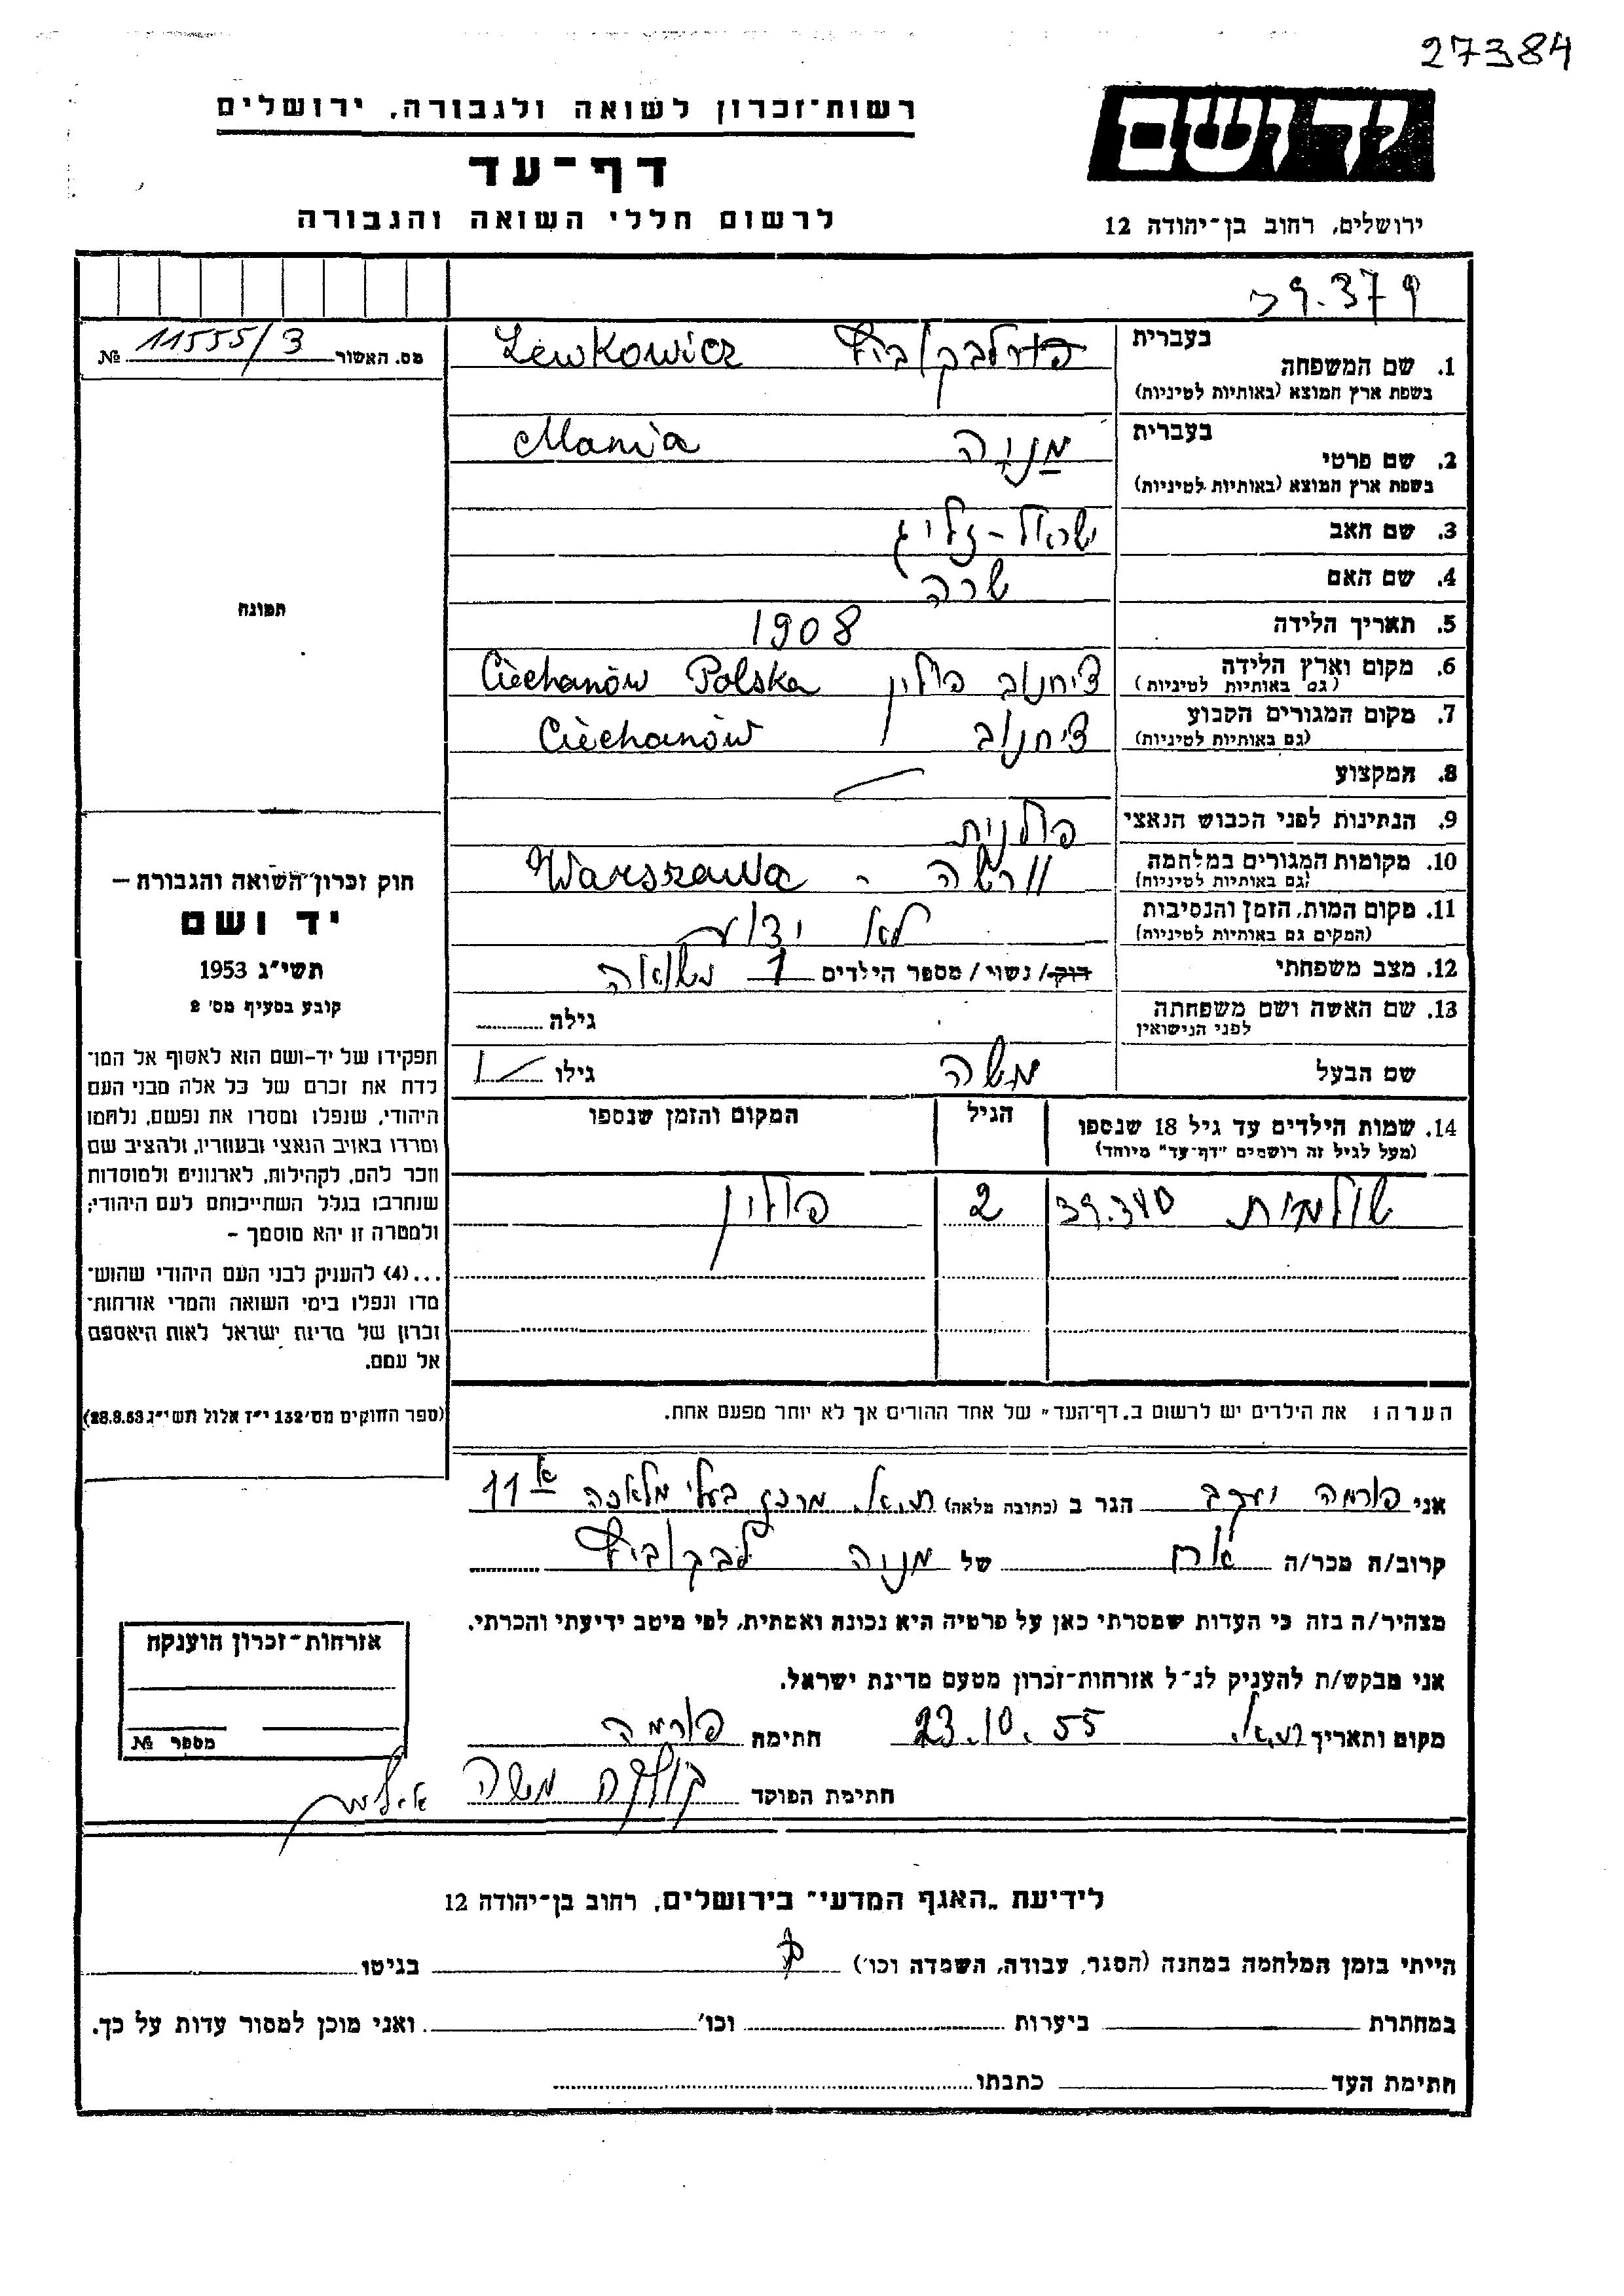 27384
רשות־זכרון לשואה ולגבורה, ירושלים
יד ושם
דף־עד
לרשום חללי השואה והגבורה
ירושלים, רחוב בן־יהודה 12
39.379
מס. האשור 11555/3 №
בעברית
1. שם המשפחה לבקוביץ Lewkowicz
בשפת ארץ המוצא (באותיות לטיניות)
בעברית
2. שם פרטי מניה Mania
בשפת ארץ המוצא (באותיות לטיניות)
3. שם האב ישראל - זליג
4. שם האם שרה
5. תאריך הלידה 1908
6. מקום וארץ הלידה ציחנוב פולין Ciechanów Polska
(גם באותיות לטיניות)
7. מקום המגורים הקבוע ציחנוב Ciechanów
(גם באותיות לטיניות)
8. המקצוע
9. הנתינות לפני הכבוש הנאצי פולנית
10. מקומות המגורים במלחמה וורשה - Warszawa
(גם באותיות לטיניות)
11. מקום המות, הזמן והנסיבות לא ידוע
(המקום גם באותיות לטיניות)
12. מצב משפחתי רוק / נשוי / מספר הילדים 1 נשואה
13. שם האשה ושם משפחתה גילה
לפני הנישואין
שם הבעל משה גילו
14. שמות הילדים עד גיל 18 שנספו הגיל המקום והזמן שנספו
(מעל לגיל זה רושמים "דף־עד" מיוחד)
שולמית 39.380 2 פולין
הערה: את הילדים יש לרשום ב„דף־העד" של אחד ההורים אך לא יותר מפעם אחת.
תמונה
חוק זכרון־השואה והגבורה —
יד ושם
תשי"ג 1953
קובע בסעיף מס' 2
תפקידו של יד-ושם הוא לאסוף אל המו־
לדת את זכרם של כל אלה מבני העם
היהודי, שנפלו ומסרו את נפשם, נלחמו
ומרדו באויב הנאצי ובעוזריו, ולהציב שם
וזכר להם, לקהילות, לארגונים ולמוסדות
שנחרבו בגלל השתייכותם לעם היהודי;
ולמטרה זו יהא מוסמך –
...(4) להעניק לבני העם היהודי שהוש־
מדו ונפלו בימי השואה והמרי אזרחות־
זכרון של מדינת ישראל לאות היאספם
אל עמם.
(ספר החוקים מס' 132 י"ז אלול תשי"ג 28.8.53)
אני פורמה יעקב הגר ב (כתובת מלאה) ת.א. מרכז בעלי מלאכה 11א
קרוב/ה מכר/ה אח של מניה לבקוביץ
מצהיר/ה בזה כי העדות שמסרתי כאן על פרטיה היא נכונה ואמתית, לפי מיטב ידיעתי והכרתי.
אני מבקש/ת להעניק לנ"ל אזרחות־זכרון מטעם מדינת ישראל.
מקום ותאריך ת.א. 23.10.55 חתימה פורמה
חתימת הפוקד משה
אזרחות־זכרון הוענקה
מספר №
לידיעת „האגף המדעי" בירושלים, רחוב בן־יהודה 12
הייתי בזמן המלחמה במחנה (הסגר, עבודה, השמדה וכו') בגיטו
במחתרת ביערות וכו' ואני מוכן למסור עדות על כך.
חתימת העד כתבתו